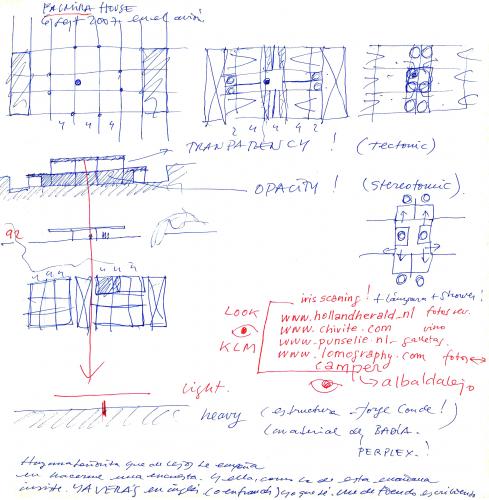 PALMIRA HOUSE
6 sept 2007. en el avión
4 4 4
2 4 4 4 2
TRANPATENCY! (tectonic)
OPACITY! (stereotomic).
LOOK
KLM
iris scaning! + lámpara + shower!
www.hollandherald.nl fotos
www.chivite.com vino
www.punselie.nl galletas.
www.lomography.com fotos
camper
albaldalejo
light.
heavy (estructura Jorge Conde!)
(material de BADIA.
PERPLEX.!
Hay una señorita que de lejos se empeña
en hacerme una encuesta. Y ello, como
insiste. YA VERÁS en inglés (o en francés) yo que sé.